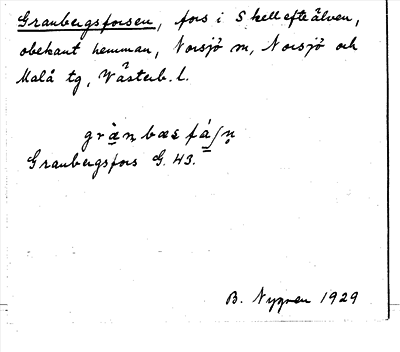 Granbergsforsen, fors i Skellefteälven,
obekant hemman, Norsjö sn, Norsjö och
Malå tg, Västerb. l.
Granbergsfors G. 43.
B. Nygren 1929